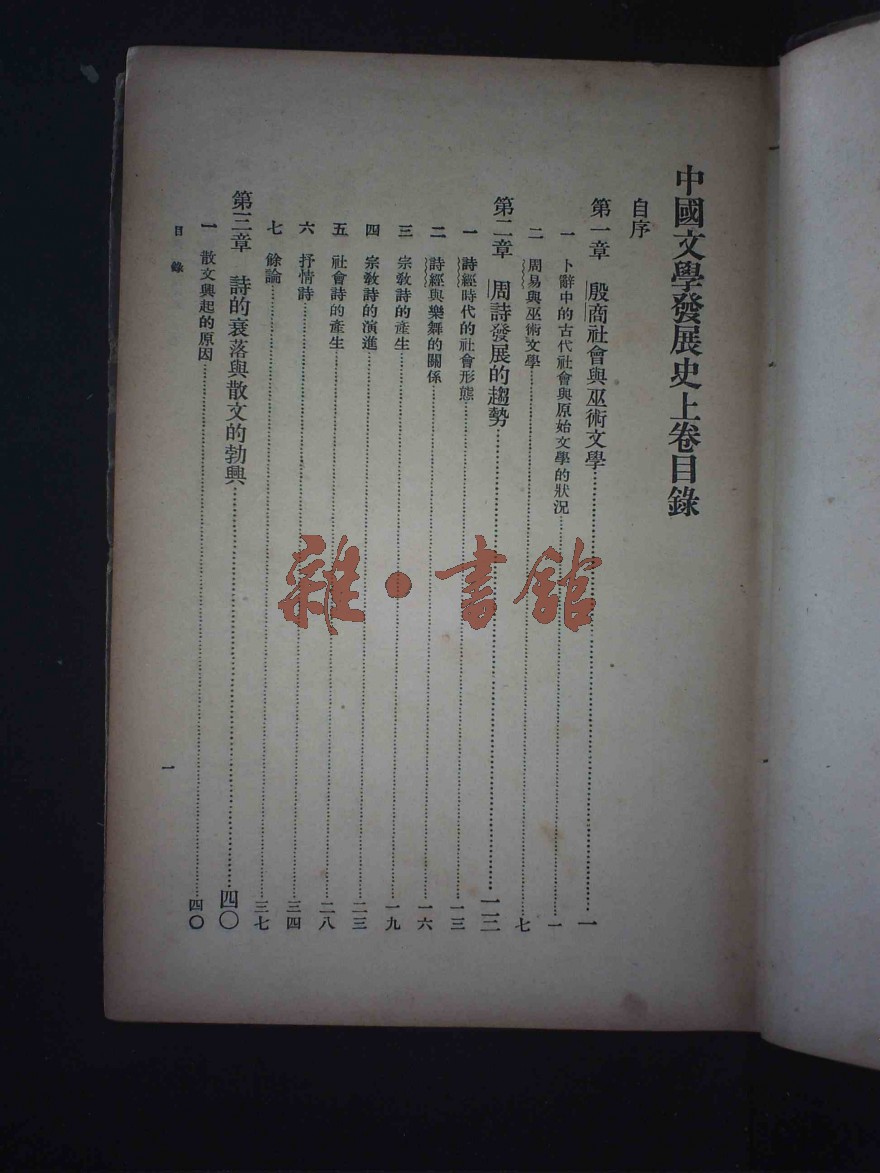 中國文學發展史上卷目錄
自序
第一章　殷商社會與巫術文學……一
一　卜辭中的古代社會與原始文學的狀況……一
二　周易與巫術文學……七
第二章　周詩發展的趨勢……一三
一　詩經時代的社會形態……一三
二　詩經與樂舞的關係……一六
三　宗教詩的產生……一九
四　宗教詩的演進……二三
五　社會詩的產生……二八
六　抒情詩……三四
七　餘論……三七
第三章　詩的衰落與散文的勃興……四〇
一　散文興起的原因……四〇
目錄
一
雜·書館